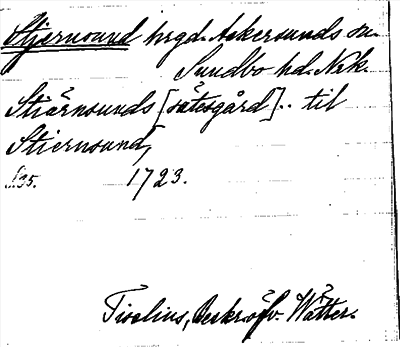 Stjernsund hrgd. Askersunds sn.
Sundbo hd. Nrk.
Stiärnsunds [sätesgård].. til
Stiernsund,
S. 35. 1723.
Tiselius, Beskr. öfv. Wätter.